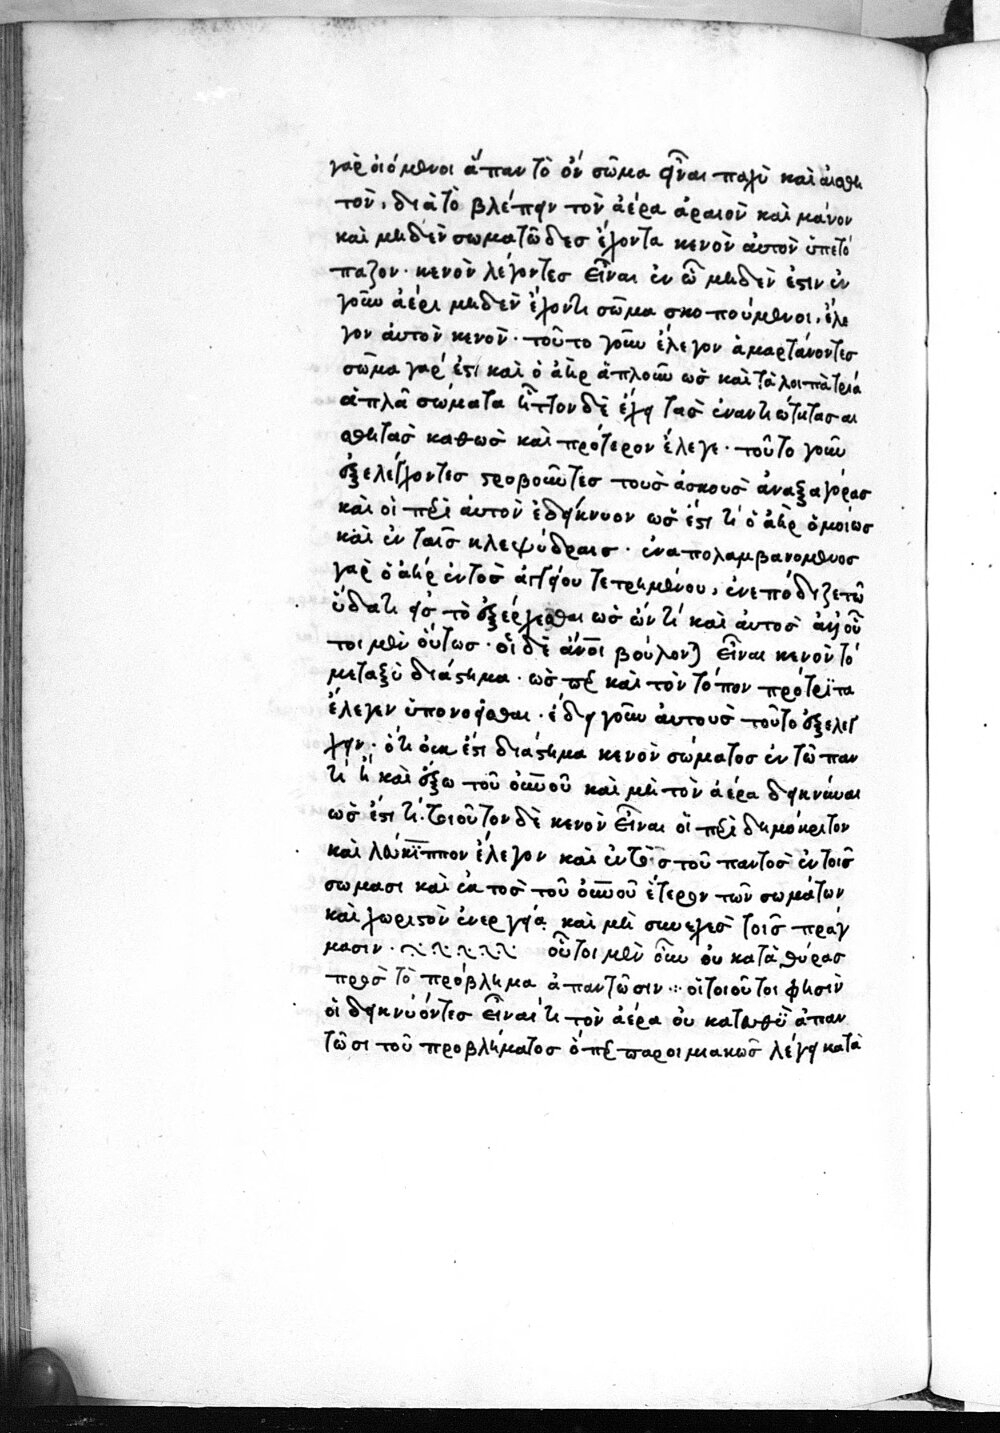 γὰρ οἰόμενοι ἅπαν τὸ ὂν σῶμα εἶναι παχὺ καὶ αἰσθη
τὸν, διὰ τὸ βλέπειν τὸν ἀέρα ἀραιὸν καὶ μάνον
καὶ μηδὲν σωματῶδες ἔχοντα κενὸν αὐτὸν ὑπετό
παζον· κενὸν λέγοντες εἶναι ἐν ὧ μηδὲν ἐστιν ἐν
γοῦν ἀέρι μηδὲν ἔχοντι σῶμα σκοπούμενοι, ἔλε
γον αὐτὸν κενὸν· τοῦτο γοῦν ἔλεγον ἁμαρτάνοντες
σῶμα γάρ ἐστι καὶ ὁ ἀὴρ ἁπλοῦν ὡς καὶ τὰ λοιπὰ τρία
ἁπλᾶ σώματα ἧττον δὲ ἔχει τὰς ἐναντιώτητας αι
σθητὰς καθὼς καὶ πρότερον ἔλεγε· τοῦτο γοῦν
ἐξελέγχοντες στροβοῦντες τοὺς ἀσκοὺς ἀναξαγόρας
καὶ οἱ περὶ αὐτὸν ἐδείκνυον ὡς ἔστι τί ὁ ἀὴρ ὁμοίως
καὶ ἐν ταῖς κλεψύδραις· ἐναπολαμβανόμενος
γὰρ ὁ ἀὴρ ἐντὸς ἀγγείου τετρημένου, ἐνεπόδιζε τῶ
ὕδατι εἰς τὸ ἐξέρχεσθαι ὡς ὤν τί καὶ αὐτὸς οὗ
τοι μὲν οὕτως· οἱ δὲ ἄνοι βούλονται εἶναι κενὸν τὸ
μεταξὺ διάστημα· ὥσπερ καὶ τὸν τόπον πρότριτα
ἔλεγεν ὑπονοεῖσθαι· ἔδει γοῦν αὐτοὺς τοῦτο ἐξελέγ
χειν· ὅτι οὐκ ἔστι διάστημα κενὸν σώματος ἐν τῶ παν
τὶ ἢ καὶ ἔξω τοῦ οὐνοῦ καὶ μὴ τὸν ἀέρα δεικνύναι
ὡς ἔστι τί· τοιοῦτον δὲ κενὸν εἶναι οἱ περὶ δημόκριτον
καὶ λεύκιππον ἔλεγον καὶ ἐντὸς τοῦ παντὸς ἐν τοῖς
σώμασι καὶ ἐκτὸς τοῦ οὐνοῦ ἕτερον τῶν σωμάτων
καὶ χωριστὸν ἐνεργεία καὶ μὴ συνεχὲς τοῖς πράγ
μασιν· οὗτοι μὲν οὖν οὐ κατὰ θύρας
πρὸς τὸ πρόβλημα ἀπαντῶσιν·: οἱ τοιοῦτοι φησὶν
οἱ δεικνύοντες εἶναί τι τὸν ἀέρα οὐ κατευθὺ ἀπαν
τῶσι τοῦ προβλήματος ὅπερ παροιμιακῶς λέγει κατὰ